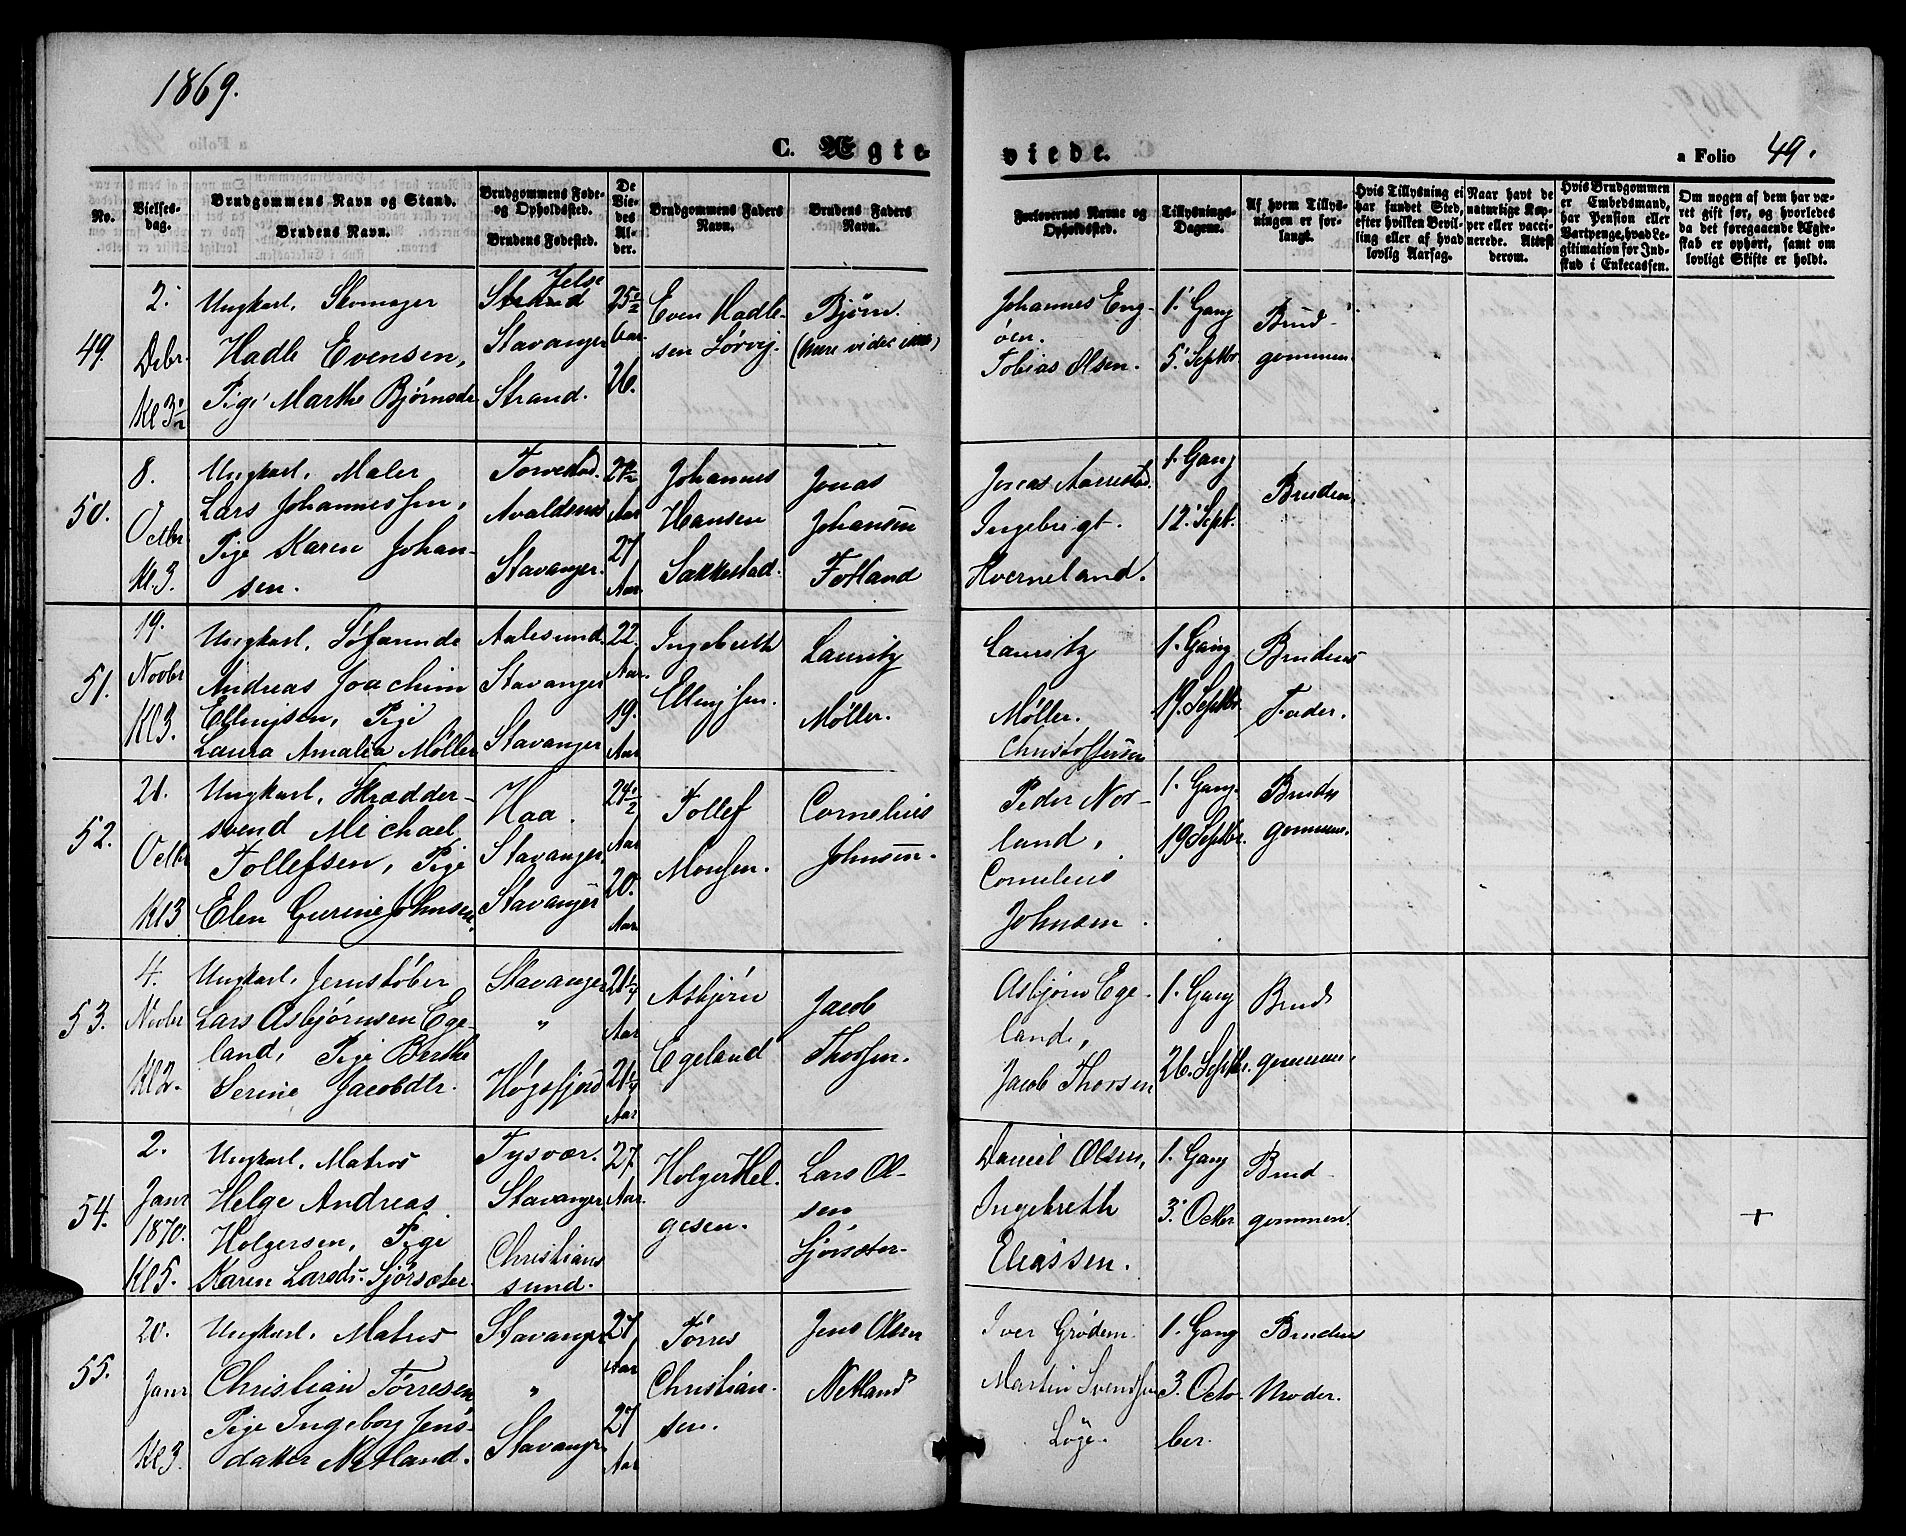 1869.
C. Ægte
viede.
a Folio 49.
No.
Vielses-
dag.
Brudgommens Navn og Stand.
Brudens Navn.
Brudgommens Føde-
og Opholdssted.
Brudens Fødested.
De
Vie-
des
Al-
der.
Brudgommens Faders
Navn.
Brudens Faders
Navn.
Forlovernes Navne og
Opholdssted.
Tillysnings-
Dagene.
Af hvem Tillys-
ningen er for-
langt.
Hvis Tillysning ei
har fundet Sted,
efter hvilken Bevil-
ling eller af hvad
lovlig Aarsag.
Naar havt de
naturlige Kop-
per eller vacci-
nerede. Attest
derom.
Hvis Brudgommen
er Embedsmand,
har Pension eller
Vartpenge, hvad Le-
gitimation for Ind-
skud i Enkecassen.
Om nogen af dem har væ-
ret gift før, og hvorledes
da det foregaaende Ægte-
skab er ophørt, samt om
lovligt Skifte er holdt.
49.
2.
Debr.
Kl 3½
Ungkarl, Skomager
Hadle Evensen,
Pige Marthe Bjørnsdr
Jelse
Strand
Stavanger
Strand.
25½
Aar
26.
Even Hadle-
sen Sørvig.
Bjørn.
Johannes Eng-
øen.
Tobias Olsen.
1. Gang
5. Septbr
Brud-
gommen
50.
8.
Octbr
Kl.3.
Ungkarl, Maler
Lars Johannessen,
Pige Karen Johan-
sen.
Torvestad.
Avaldsnes
Stavanger.
Aar
27
Aar
Johannes
Hansen
Sakkestad.
Jonas
Johansen
Fotland
Jonas Aarrestad.
Ingebrigt
Hverneland.
1. Gang
12. Sept.
Bruden
51.
19.
Novbr
Kl 3.
Ungkarl, Søfarende
Andreas Joachim
Ellingsen, Pige
Laura Amalia Møller
Aalesund.
Stavanger
Stavanger
22.
Aar.
19.
Aar
Ingebreth
Ellingsen.
Lauritz
Møller.
Lauritz
Møller.
Christoffersen
1. Gang
19. Septbr.
Brudens
Fader.
52.
21.
Octbr
Kl 3
Ungkarl, Skrædder-
svend Michael
Tollefsen, Pige
Elen Gurine Johnsen,
Haa.
Stavanger.
Stavanger
24½
Aar
20.
Aar
Tollef
Monsen.
Cornelius
Johnsen.
Peder Nor-
land,
Cornelius
Johnsen.
1. Gang.
19 Septbr.
Brud-
gommen.
53.
4.
Novbr
Kl 2.
Ungkarl, Jernstøber
Lars Asbjørnsen Ege-
land, Pige Berthe
Serine Jacobdtr.
Stavanger
"
Høgsfjord
21¼
Aar
21¼
Aar
Asbjørn
Egeland
Jacob
Thorsen.
Asbjørn Ege-
land,
Jacob Thorsen
1. Gang
26. Septbr.
Brud
gommen.
54.
2.
Janr
1870.
Kl 5.
Ungkarl, Matros
Helge Andreas
Holgersen, Pige
Karen Larsdr. Sjørsæter.
Tysvær.
Stavanger
Christians
sund.
27.
Aar.
Holger Hel-
gesen.
Lars Ol-
sen
Sjørsæter.
Daniel Olsen,
Ingebreth
Eliassen.
1. Gang
3. Octbr
Brud-
gommen.
+
55.
20.
Janr
Kl 3.
Ungkarl, Matros
Christian Tørresen
Pige Ingeborg Jens-
datter Netland.
Stavanger
"
Stavanger
27
Aar
27
Aar
Tørres
Christian-
sen.
Jens Olsen
Netland
Iver Grødem.
Martin Svendsen
Løge.
1. Gang
3. Octo-
ber.
Brudens
Moder.